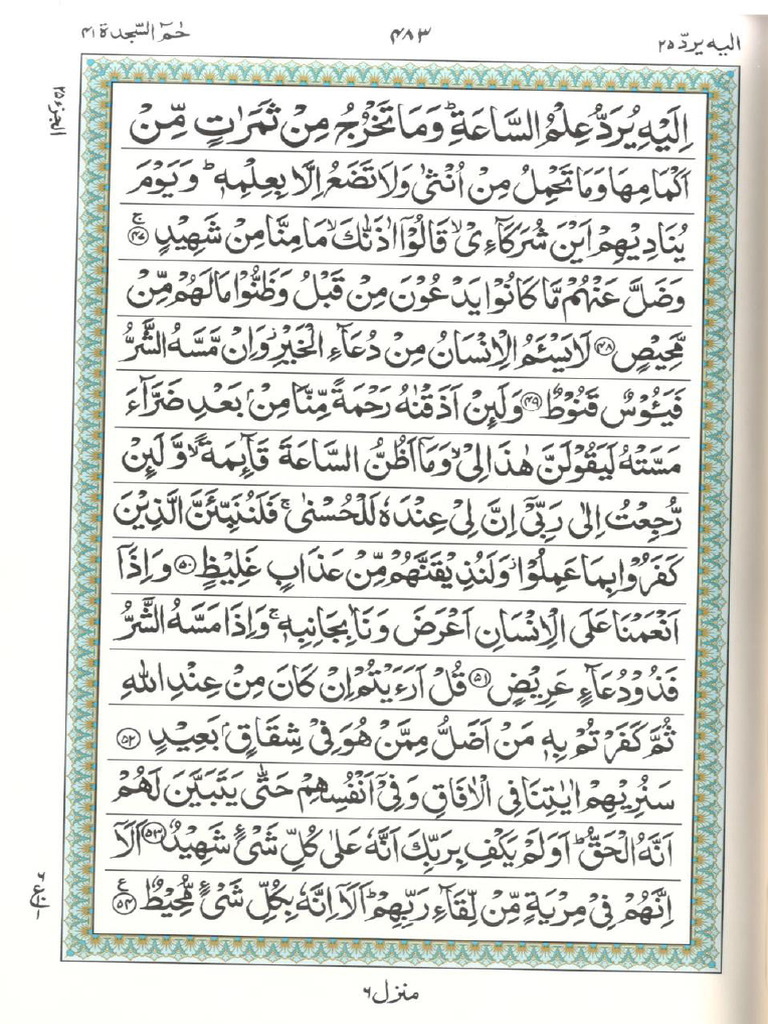 الیه یردّ ۲۵
۴۸۳
حٰمٓ السّجدة ۴۱
الجزء ۲۵
اِلَیْهِ یُرَدُّ عِلْمُ السَّاعَةِ ؕ وَمَا تَخْرُجُ مِنْ ثَمَرٰتٍ مِّنْ
اَكْمَامِهَا وَمَا تَحْمِلُ مِنْ اُنْثٰی وَلَا تَضَعُ اِلَّا بِعِلْمِهٖ ؕ وَیَوْمَ
یُنَادِیْهِمْ اَیْنَ شُرَكَآءِیْ ۙ قَالُوْۤا اٰذَنّٰكَ ۙ مَا مِنَّا مِنْ شَهِیْدٍ ۚ ﴿۴۷﴾
وَضَلَّ عَنْهُمْ مَّا كَانُوْا یَدْعُوْنَ مِنْ قَبْلُ وَظَنُّوْا مَا لَهُمْ مِّنْ
مَّحِیْصٍ ﴿۴۸﴾ لَا یَسْئَمُ الْاِنْسَانُ مِنْ دُعَآءِ الْخَیْرِ ؗ وَاِنْ مَّسَّهُ الشَّرُّ
فَیَئُوْسٌ قَنُوْطٌ ﴿۴۹﴾ وَلَئِنْ اَذَقْنٰهُ رَحْمَةً مِّنَّا مِنْۢ بَعْدِ ضَرَّآءَ
مَسَّتْهُ لَیَقُوْلَنَّ هٰذَا لِیْ ۙ وَمَاۤ اَظُنُّ السَّاعَةَ قَآئِمَةً ۙ وَّلَئِنْ
رُّجِعْتُ اِلٰی رَبِّیْۤ اِنَّ لِیْ عِنْدَهٗ لَلْحُسْنٰی ۚ فَلَنُنَبِّئَنَّ الَّذِیْنَ
كَفَرُوْا بِمَا عَمِلُوْا ؗ وَلَنُذِیْقَنَّهُمْ مِّنْ عَذَابٍ غَلِیْظٍ ﴿۵۰﴾ وَاِذَاۤ
اَنْعَمْنَا عَلَی الْاِنْسَانِ اَعْرَضَ وَنَاٰ بِجَانِبِهٖ ۚ وَاِذَا مَسَّهُ الشَّرُّ
فَذُوْ دُعَآءٍ عَرِیْضٍ ﴿۵۱﴾ قُلْ اَرَءَیْتُمْ اِنْ كَانَ مِنْ عِنْدِ اللّٰهِ
ثُمَّ كَفَرْتُمْ بِهٖ مَنْ اَضَلُّ مِمَّنْ هُوَ فِیْ شِقَاقٍۭ بَعِیْدٍ ﴿۵۲﴾
سَنُرِیْهِمْ اٰیٰتِنَا فِی الْاٰفَاقِ وَفِیْۤ اَنْفُسِهِمْ حَتّٰی یَتَبَیَّنَ لَهُمْ
اَنَّهُ الْحَقُّ ؕ اَوَلَمْ یَكْفِ بِرَبِّكَ اَنَّهٗ عَلٰی كُلِّ شَیْءٍ شَهِیْدٌ ﴿۵۳﴾ اَلَاۤ
اِنَّهُمْ فِیْ مِرْیَةٍ مِّنْ لِّقَآءِ رَبِّهِمْ ؕ اَلَاۤ اِنَّهٗ بِكُلِّ شَیْءٍ مُّحِیْطٌ ﴿۵۴﴾ ع
منزل ۶